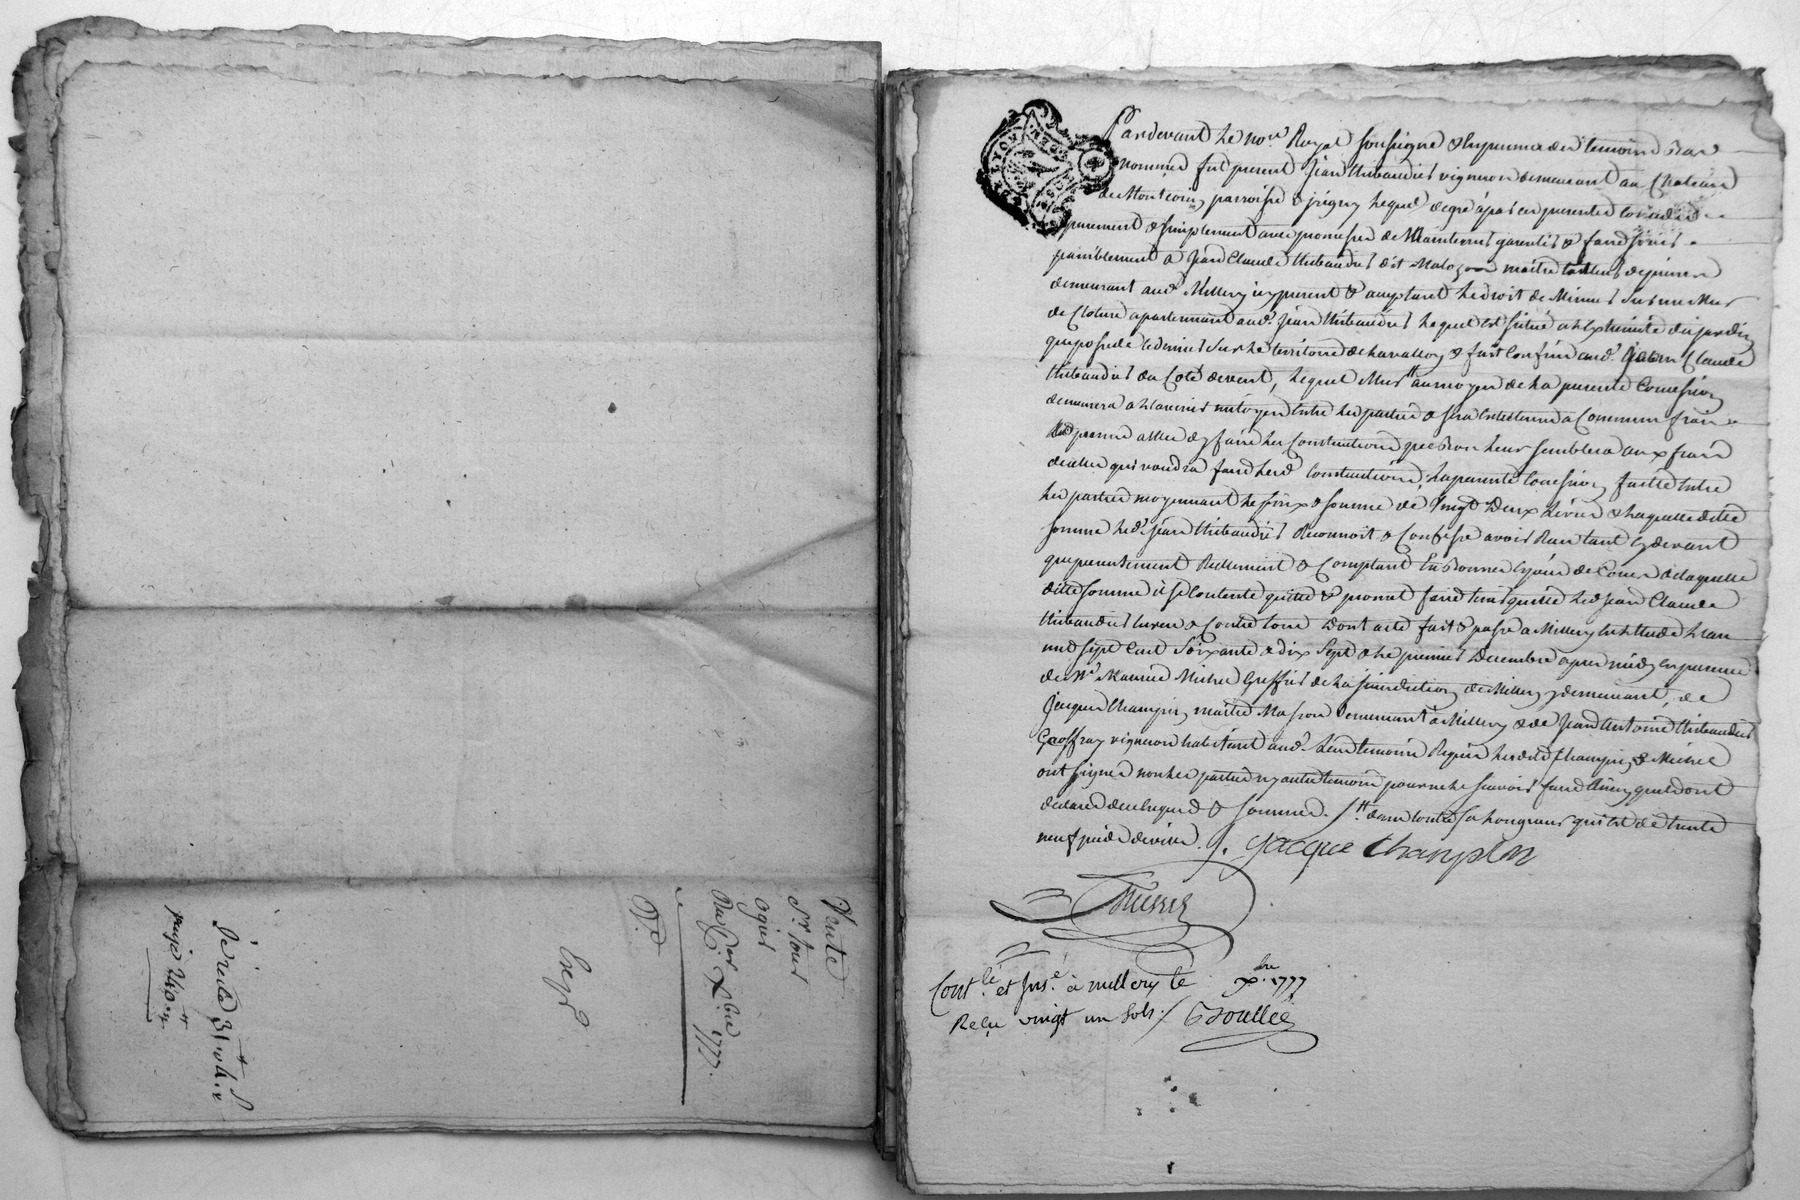 Vente
Sr tour
ogier
Du 1er Xbre 1777.
Expé
Pardevant le nore Royal soussigné & en presence des temoins bas
nommés fut present Jean thibaudier vigneron demeurant au Chateau
de Montcorin parroisse d'jrigny lequel de gré a par ces presentes
purement & simplement avec promesse de Maintenir garentir & faire jouir
paisiblement a Jean Claude thibaudier dit maitre tailleur de pierres
demeurant aud. Millery icy present & acceptant le droit de Mitier sur un Mur
de Cloture apartennant aud. Jean thibaudier lequel est situé a l'extremité du jardin
que possede ce dernier sur le territoire de la vallon & fait Confin aud. Jean Claude
thibaudier du Coté devent, lequel Mur au moyen de la presente Concession
demeurera a l'avenir mitoyen entre les parties & sera entretenu a Commun frais
permis a elles d'y faire les Constructions que bon leur semblera aux frais
de celle qui voudra faire lesd. Constructions, la presente Concession faitte entre
les parties moyennant le prix & somme de vingt deux Livres & laquelle ditte
somme led. Jean thibaudier Reconnoit & Confesse avoir Reçu tant cy devant
que presentement Reellement & Comptant En bonnes Especes de Cours de laquelle
ditte somme il se Contente quitte & promet faire tenir quitte led. Jean Claude
thibaudier envers & Contre tous Dont acte fait & passé a Millery En Etude L'an
mil sept Cent soixante & dix Sept & le premier Decembre apres midy en presence
de Me Maurice Michel Greffier de la jurisdiction de Millery y demeurant, de
Jacques Champin maitre Masson Demeurant a Millery & de Jean Antoine thibaudier
Geoffray vigneron habitant aud. Lieu temoins Requis lesdits Champin & Michel
ont signé non les parties ny autre temoin pour ne le scavoir faire ainsy qu'ils ont
declaré de ce enquis & sommés. /tt dans toute sa longueur qui est de trente
neuf pieds environ. /. Jacque Champin
Michel
Contlé et Insé. à millery le Xbre 1777
Reçu vingt un sols ./. Goullée